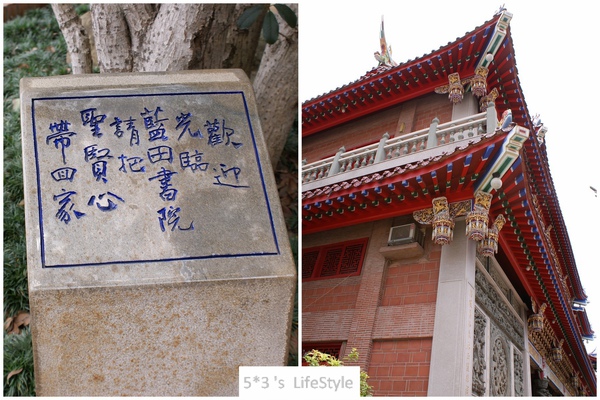 歡迎
光臨
藍田書院
請把
聖賢心
帶回家
5*3 's LifeStyle